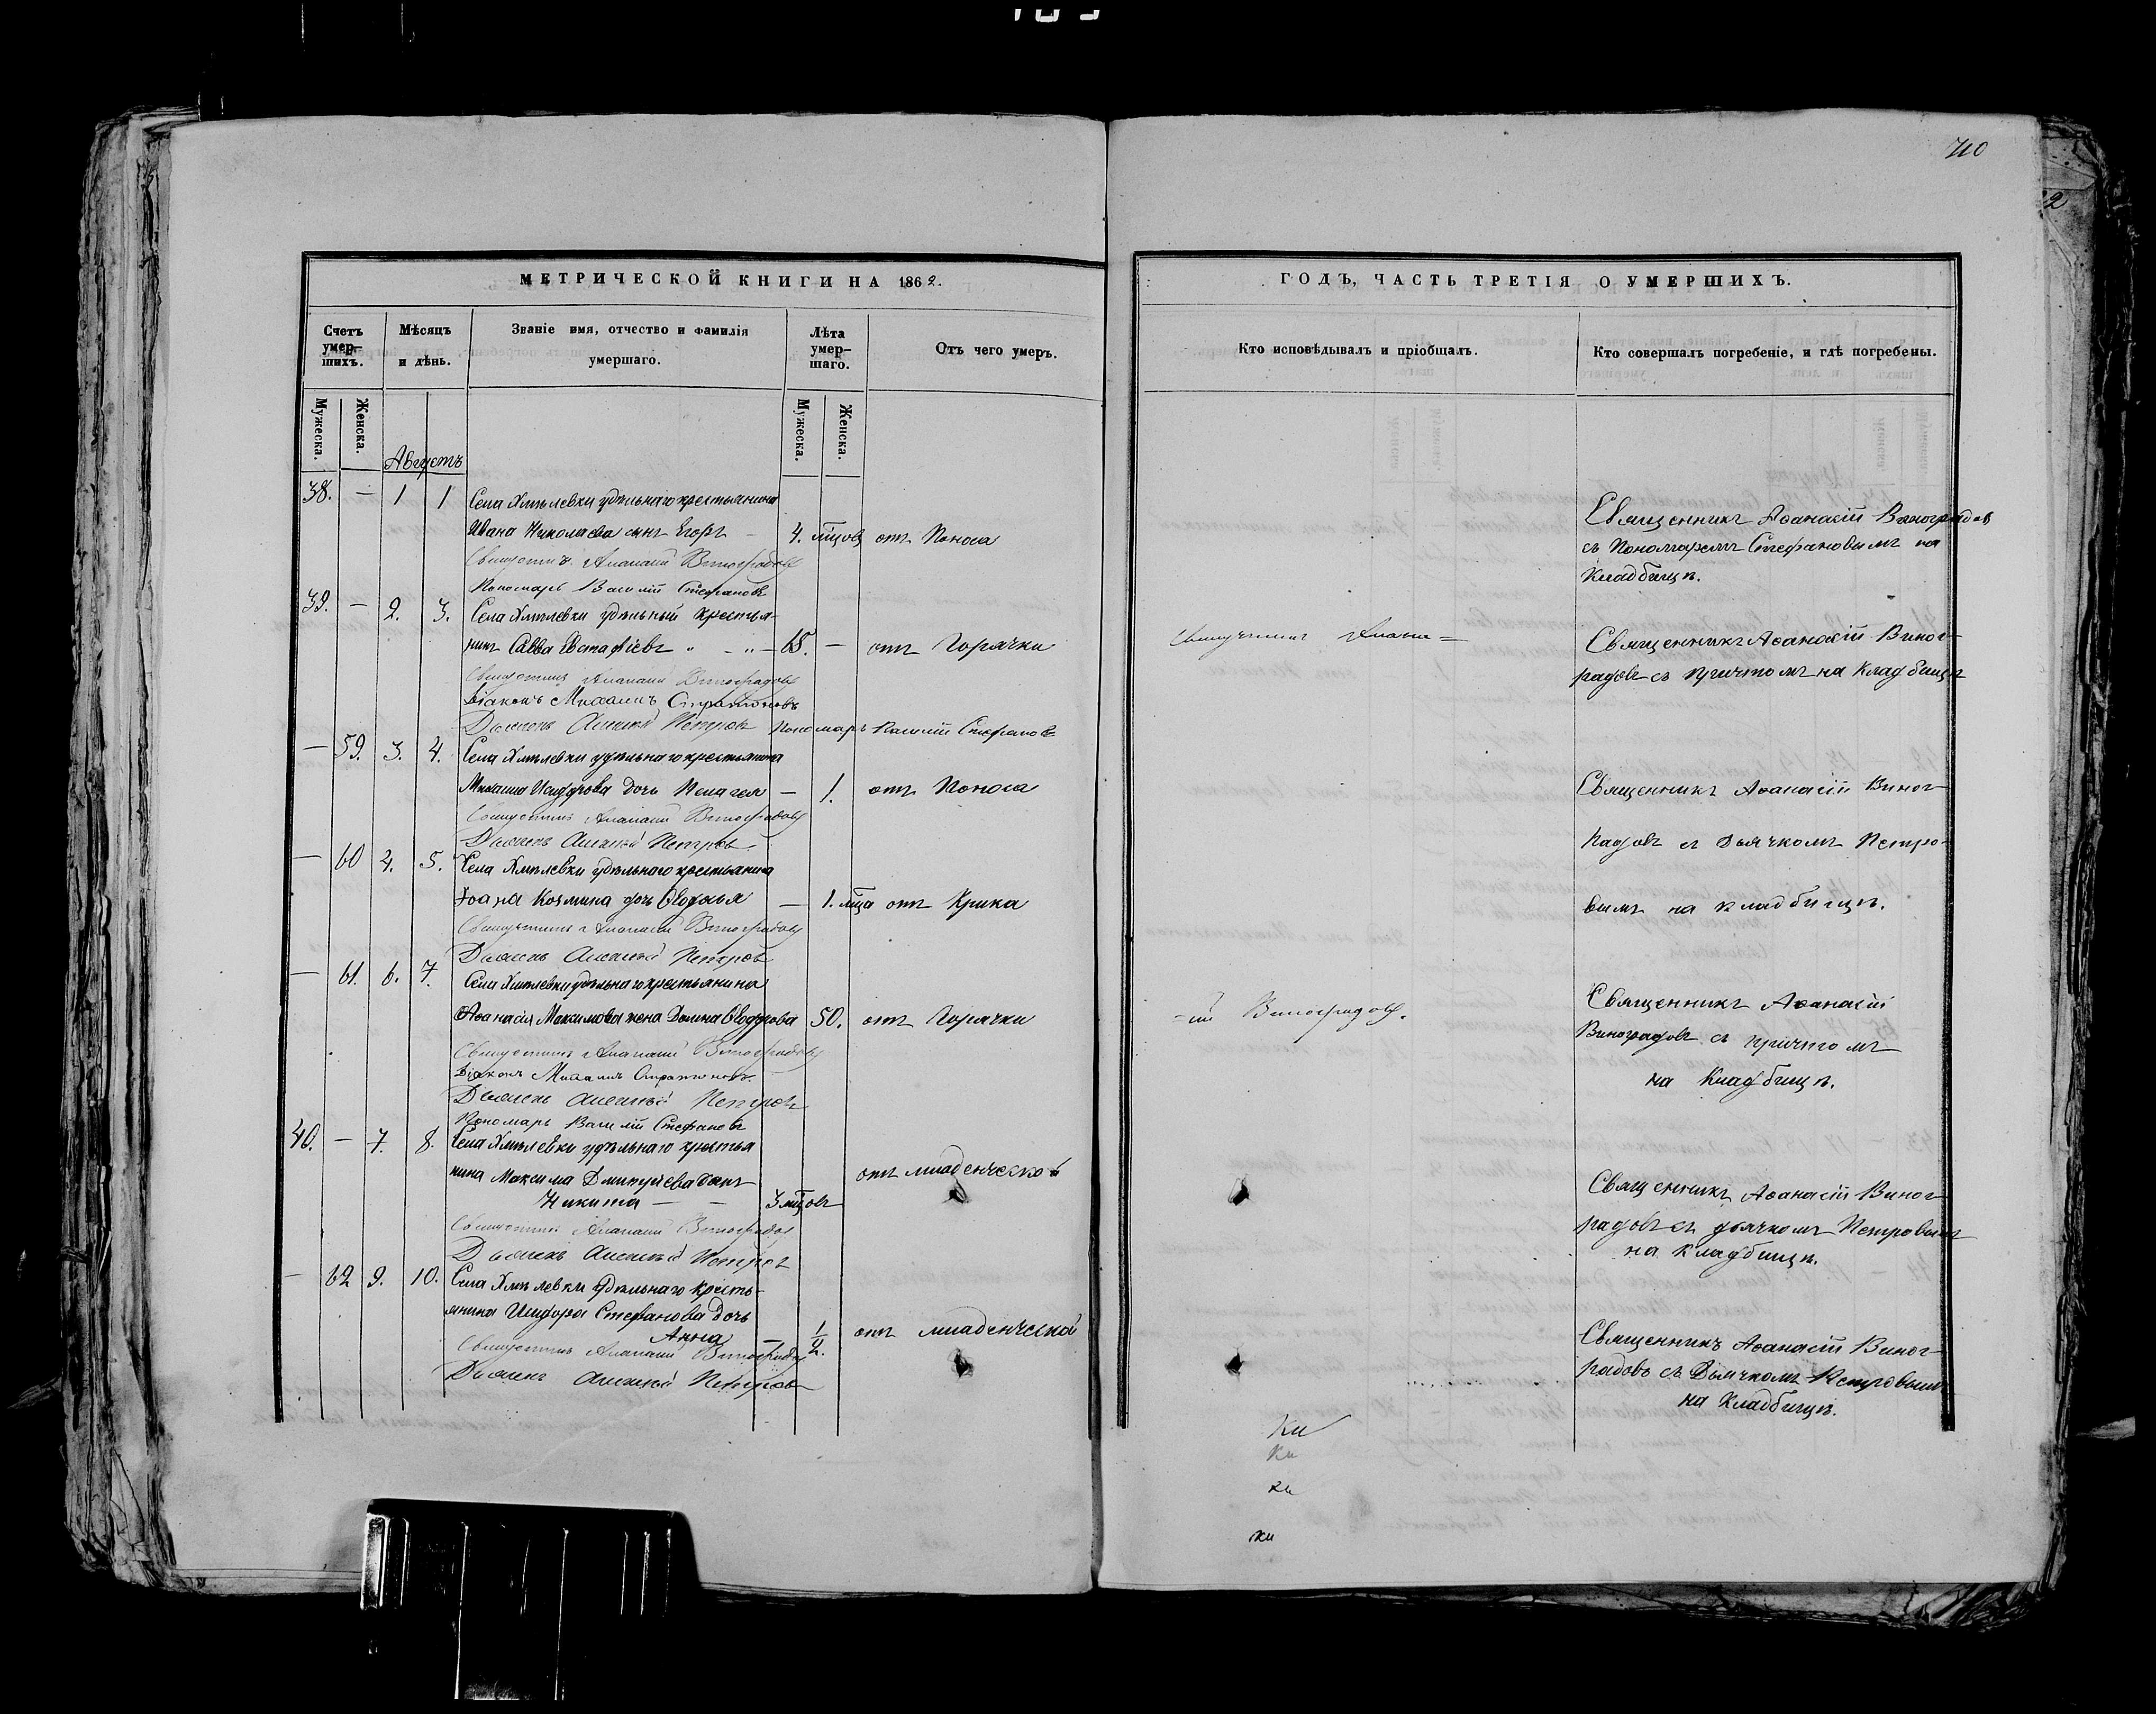 710
МЕТРИЧЕСКОЙ КНИГИ НА 1862.
Счетъ умер-шихъ.
Мѣсяцъ и дѣнь.
Званіе имя, отчество и фамилія умершаго.
Лѣта умер-шаго.
Отъ чего умеръ.
Мужеска.
Женска.
Мужеска.
Женска.
Августъ
38. — 1 1 Села Хмѣлевки удѣльнаго крестьянина
Ивана Николаева сынъ Егоръ — 4. мцовъ отъ Поноса
Священникъ Аѳанасій Виноградовъ
Пономарь Василій Стефановъ
39. — 2. 3. Села Хмѣлевки удѣльный крестья-
нинъ Савва Евстафіевъ — 65. — отъ Горячки
Священникъ Аѳанасій Виноградовъ
Діаконъ Михаилъ Стратоновъ
Дьячекъ Алексѣй Петровъ Пономарь Василій Стефановъ
— 59. 3. 4. Села Хмѣлевки удѣльнаго крестьянина
Михаила Исидорова дочь Пелагея — 1. отъ Поноса
Священникъ Аѳанасій Виноградовъ
Дьячекъ Алексѣй Петровъ
— 60 4. 5. Села Хмѣлевки удѣльнаго крестьянина
Іоана Козмина дочь Евдокія — 1. мца отъ Крика
Священникъ Аѳанасій Виноградовъ
Дьячекъ Алексѣй Петровъ
— 61. 6. 7. Села Хмѣлевки удѣльнаго крестьянина
Аѳанасія Максимова жена Домна Ѳедорова 50. отъ Горячки
Священникъ Аѳанасій Виноградовъ
Діаконъ Михаилъ Стратоновъ
Дьячекъ Алексѣй Петровъ
Пономарь Василій Стефановъ
40. — 7. 8. Села Хмѣлевки удѣльнаго крестья
нина Максима Дмитріева сынъ отъ младенческой
Никита — — 3 мцовъ
Священникъ Аѳанасій Виноградовъ
Дьячекъ Алексѣй Петровъ
— 62 9. 10. Села Хмѣлевки удѣльнаго кресть-
янина Исидора Стефанова дочь
Анна — 1/2. отъ младенческой
Священникъ Аѳанасій Виноградовъ
Дьячекъ Алексѣй Петровъ
ГОДЪ, ЧАСТЬ ТРЕТІЯ О УМЕРШИХЪ.
Кто исповѣдывалъ и пріобщалъ.
Кто совершалъ погребеніе, и гдѣ погребены.
Священникъ Аѳанасій Виноградовъ
съ Пономаремъ Стефановымъ на
Кладбищѣ.
Священникъ Аѳана=
Священникъ Аѳанасій Виног-
радовъ съ причтомъ на Кладбищѣ
Священникъ Аѳанасій Виног-
радовъ съ Дьячкомъ Петро-
вымъ на кладбищѣ.
-ій Виноградовъ.
Священникъ Аѳанасій
Виноградовъ съ причтомъ
на Кладбищѣ.
Священникъ Аѳанасій Виног-
радовъ съ дьячкомъ Петровымъ
на кладбищѣ.
Священникъ Аѳанасій Виног-
радовъ съ Дьячкомъ Петровымъ
на Кладбищѣ.
Ки
Ки
ки
ки